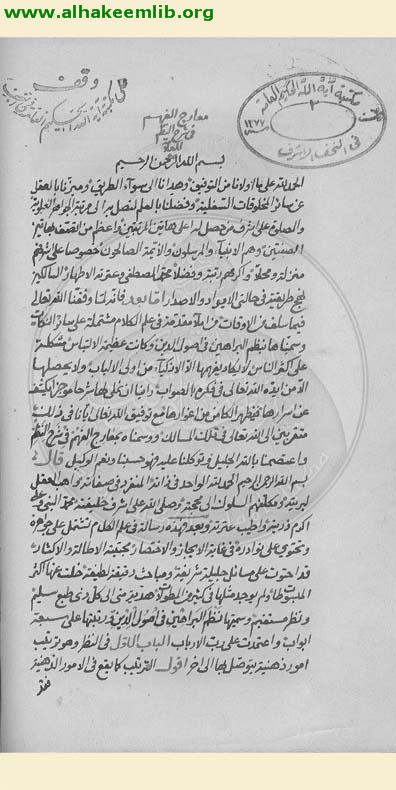 www.alhakeemlib.org
وقف
مكتبة آية الله الحكيم العامة
معارج الفهم
في شرح النظم
للعلامة
مكتبة آية الله الحكيم العامة
٢
١٣٧٧
في النجف الاشرف
بسم الله الرحمن الرحيم
الحمد لله على ما اولانا من التوفيق وهدانا الى سواء الطريق وميزنا بالعقل
عن سائر المخلوقات السفلية وفضلنا بالعلم
والصلوة على اشرف من حصل له اعلى هاتين المرتبتين واعظم من
وهم الانبياء والمرسلون والائمة الصالحون خصوصا على
منزلة ومحلا واكرمهم رتبة وفضلا محمد المصطفى وعترته الاطهار السالكين
نهج طريقته في حالتي الايراد والاصدار اما بعد فانه لما وفقنا الله تعالى
فيما سلف من الاوقات من املاء مقدمة في علم الكلام مشتملة على سائر النكات
وسمناها بنظم البراهين في اصول الدين وكانت عظيمة الالتباس مشكلة
على اكثر الناس لا يكاد يفهمها الا الاذكياء من اولى الالباب ولا يحصلها
الا من ايده الله تعالى في فكره بالصواب راينا ان نملى لها شرحا موجزا يكشف
عن اسرارها ويظهر الكامن من اغوارها مع توفيق الله تعالى ايانا في ذلك
متقربين الى الله تعالى في تلك المسالك ووسمناه بمعارج الفهم في شرح النظم
واعتصمنا بالله الجليل وتوكلنا عليه فهو حسبنا ونعم الوكيل قال
بسم الله الرحمن الرحيم الحمد لله الواحد في ذاته المنفرد في صفاته واهب العقل
لبريته ومكلفهم السلوك الى محجته وصلى الله على اشرف خليقته محمد النبي وعلى
اكرم ذريته واطيب عترته وبعد فهذه رسالة في علم الكلام تشتمل على جوهره
وتحتوي على نوادره في غاية الايجاز والاختصار مجتنبة الاطالة والاكثار
قد احتوت على مسائل جليلة شريفة ومباحث دقيقة لطيفة خلت عنها اكثر
ولم يوجد مثلها في كثير من المطولات هدية مني الى كل ذى طبع سليم
ونظر مستقيم وسميتها نظم البراهين في اصول الدين ورتبتها على سبعة
ابواب واعتمدت على رب الارباب الباب الاول في النظر وهو ترتيب
امور ذهنية يتوصل بها الى اخر اقول الترتيب كما يقع في الامور الذهنية
فقد